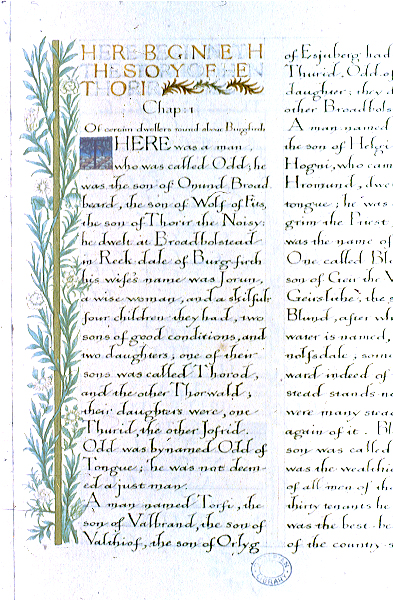 HERE BEGINNETH
THE STORY OF HEN
THORIR
Chap: 1
Of certain dwellers round about Burgfirth
THERE was a man
who was called Odd; he
was the son of Onund Broad
beard, the son of Wolf of Fits,
the son of Thorir the Noisy:
he dwelt at Broadbolstead
in Reek dale of Burgfirth
his wife's name was Jorun,
a wise woman, and a skilful:
four children they had, two
sons of good conditions, and
two daughters; one of their
sons was called Thorod,
and the other Thorwald;
their daughters were, one
Thurid, the other Jofrid.
Odd was bynamed Odd of
Tongue; he was not deem
ed a just man.
A man named Torfi, the
son of Valbrand, the son of
Valthiof, the son of Orlyg
of Esjuberg had
Thurid, Odd of
daughter; they d
other Broadbols
A man named
the son of Helgi
Hogni, who cam
Hromund, dwe
tongue; he was
grim the Priest
was the name of
One called Bl
son of Geir the W
Geirslithe, the s
Blund, after wh
water is named,
nolfsdale; som
ward indeed of
stead stands no
were many stead
again of it. Bl
son was called
was the wealthi
of all men of th
thirty tenants he
was the best-be
of the country s
LIBRARY